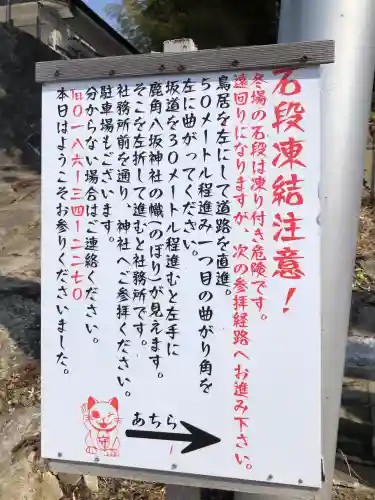 石段凍結注意!
冬場の石段は凍り付き危険です。
遠回りになりますが、次の参拝経路へお進み下さい。
鳥居を左にして道路を直進。
50メートル程進み一つ目の曲がり角を
左に曲がってください。
坂道を30メートル程進むと左手に
鹿角八坂神社の幟(のぼり)が見えます。
そこを左折して進むと社務所です。
社務所前を通り、神社へご参拝ください。
駐車場もございます。
分からない場合はご連絡ください。
0186-34-2270
本日はようこそお参りくださいました。
あちら